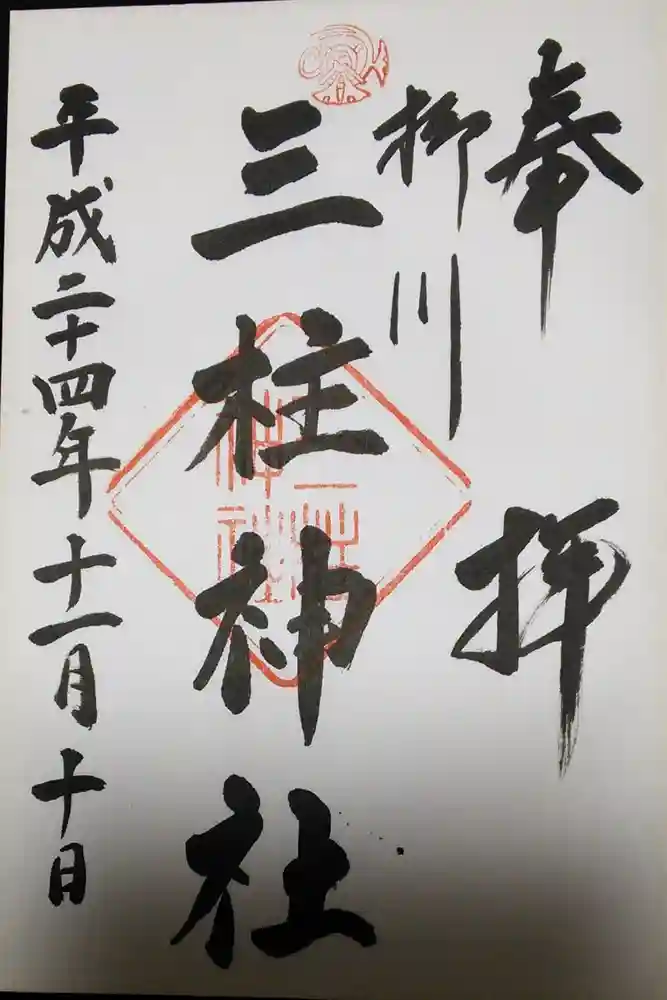 奉拝
柳川
三柱神社
平成二十四年十一月十日